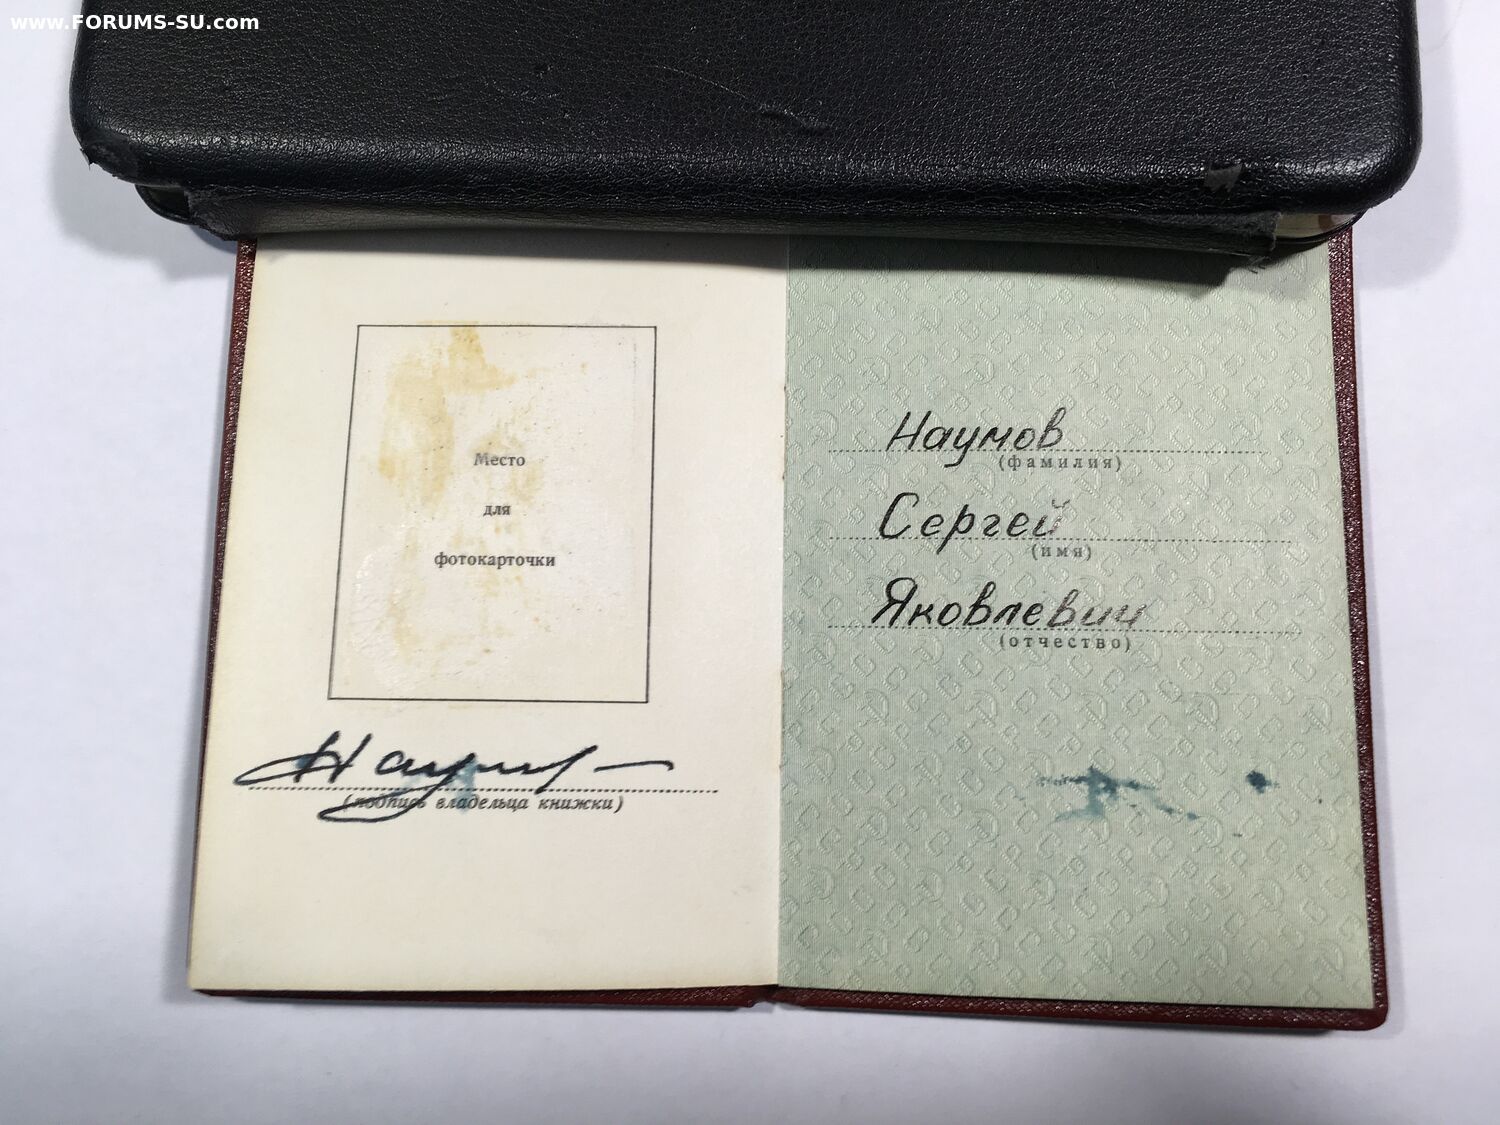 www.FORUMS-SU.com
Место
для
фотокарточки
Наумов
(подпись владельца книжки)
Наумов
(фамилия)
Сергей
(имя)
Яковлевич
(отчество)